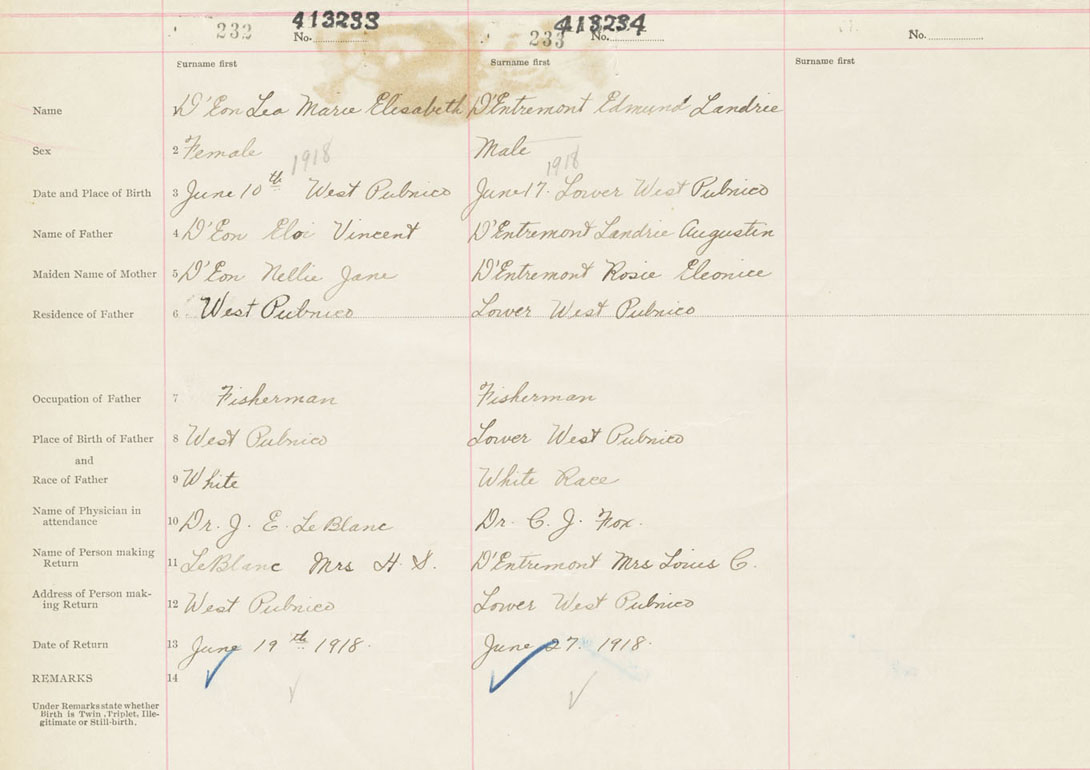 232 413233 No. 233 413234 No. No.
Surname first Surname first Surname first
Name 1 D'Eon Lea Marie Elisabeth D'Entremont Edmund Landrie
Sex 2 Female Male
1918 1918
Date and Place of Birth 3 June 10th West Pubnico June 17. Lower West Pubnico
Name of Father 4 D'Eon Eloi Vincent D'Entremont Landrie Augustin
Maiden Name of Mother 5 D'Eon Nellie Jane D'Entremont Rosie Eleonice
Residence of Father 6 West Pubnico Lower West Pubnico
Occupation of Father 7 Fisherman Fisherman
Place of Birth of Father 8 West Pubnico Lower West Pubnico
and
Race of Father 9 White White Race
Name of Physician in
attendance 10 Dr. J. E. LeBlanc Dr. C. J. Fox.
Name of Person making
Return 11 LeBlanc Mrs H. S. D'Entremont Mrs Louis C.
Address of Person mak-
ing Return 12 West Pubnico Lower West Pubnico
Date of Return 13 June 19th 1918. June 27. 1918.
REMARKS 14
Under Remarks state whether
Birth is Twin, Triplet, Ille-
gitimate or Still-birth.